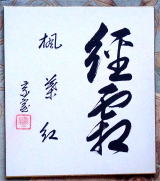 經霜
楓葉紅